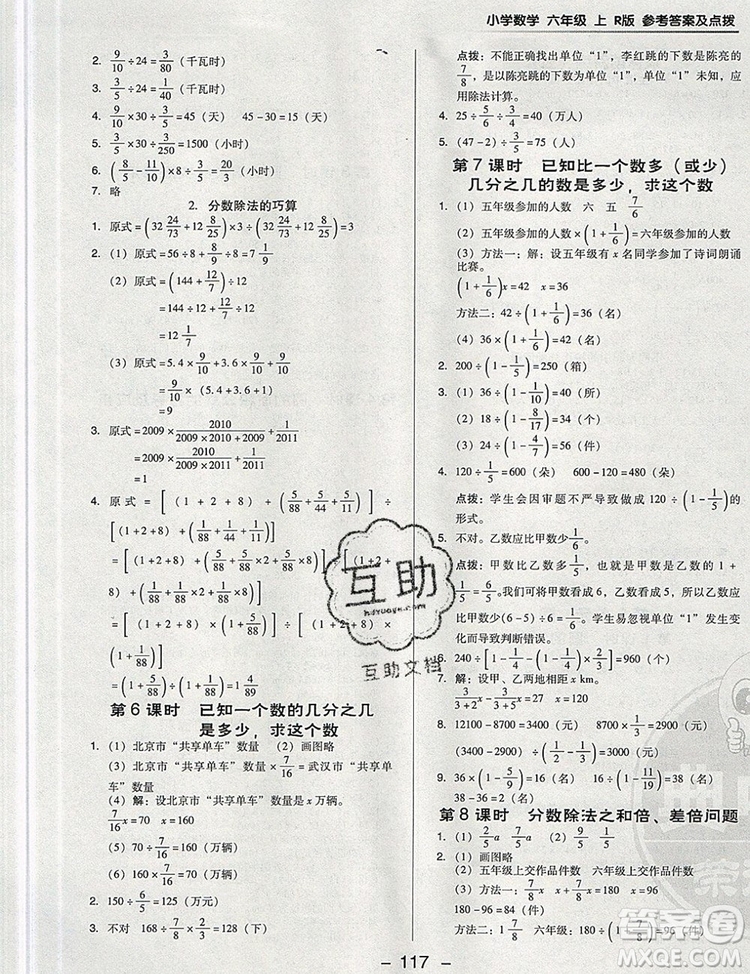 小学数学 六年级 上 R版 参考答案及点拨
2. 9/10÷24=3/80（千瓦时）
3. 3/5÷24=1/40（千瓦时）
4. 9/10×30÷3/5=45（天） 45-30=15（天）
5. 3/5×30÷3/250=1500（小时）
6. (8/5-11/10)×8÷3/5=20/3（小时）
7. 略
2. 分数除法的巧算
1. 原式=(32 24/73+12 8/25)×3÷(32 24/73+12 8/25)=3
2. （1）原式=56÷8+8/9÷8=7 1/9
（2）原式=(144+12/7)÷12
=144÷12+12/7÷12
=12 1/7
（3）原式=5.4×9/10+3.6×9/10+9/10
=9/10×(5.4+3.6+1)
=9
3. 原式=2009×2010/(2009×2010+2009)+1/2011
=2009×2010/(2009×2011)+1/2011
=1
4. 原式=[(1+2+8)+(5/88+5/44+5/11)]÷
[(1+2+8)+(1/88+1/44+1/11)]
=[(1+2+8)+(5/88+5/88×2+5/88×8)]÷[(1+2+
8)+(1/88+1/88×2+1/88×8)]
=[(1+2+8)×(1+5/88)]÷[(1+2+8)×
(1+1/88)]
=(1+5/88)÷(1+1/88)=1 4/89
第6课时 已知一个数的几分之几
是多少，求这个数
1. （1）北京市“共享单车”数量 （2）画图略
（3）北京市“共享单车”数量×7/16=武汉市“共享单
车”数量
（4）解：设北京市“共享单车”的数量是x万辆。
7/16x=70 x=160
（5）70÷7/16=160（万辆）
2. 150÷6/5=125（元）
3. 不对 112÷7/8=128（下）
点拨：不能正确找出单位“1”，李红跳的下数是陈亮的
7/8，是以陈亮跳的下数为单位“1”，单位“1”未知，应
用除法计算。
4. 25÷5/6÷3/4=40（万人）
5. (47-2)÷3/5=75（人）
第7课时 已知比一个数多（或少）
几分之几的数是多少，求这个数
1. （1）五年级参加的人数 六 五 7/6
（2）五年级参加的人数×(1+1/6)=六年级参加的人数
（3）方法一：解：设五年级有x名同学参加了诗词朗诵
比赛。
(1+1/6)x=42 x=36
方法二：42÷(1+1/6)=36（名）
（4）36×(1+1/6)=42（名）
2. 200÷(1-1/5)=250（箱）
3. （1）36÷(1-1/10)=40（所）
（2）18÷(1-8/17)=34（首）
（3）24÷(1-4/7)=56（件）
4. 120÷1/5=600（朵） 600-120=480（朵）
点拨：学生会因审题不严导致做成120÷(1-1/5)的
形式。
5. 不对。乙数应比甲数少1/6。
点拨：甲数比乙数多1/5，也就是甲数是乙数的
1+1/5=6/5。我们可以将甲数看作6，乙数看作5，乙数应
比甲数少(6-5)÷6=1/6。学生易忽视单位“1”发生变
化而导致判断错误。
6. 240÷[1-1/4-(1-1/4)×2/3]=960（个）
7. 解：设甲、乙两地相距x km。
3/(3+2)x-1/3x=80 x=300
8. 12100-8700=3400（元） 8700×1/3=2900（元）
(3400-2900)÷(1/2-1/3)=3000（元）
9. 36×(1-5/9)=16（名） 16÷(1-11/19)=38（名）
38-36=2（名）
第8课时 分数除法之和倍、差倍问题
1. （1）2/5a 7/5a （2）9/5 1/5
2. （1）画图略
（2）五年级上交作品件数 六年级上交作品件数
（3）方法一：180÷(1+7/8)=96（件）
180-96=84（件）
互助
hdzuoye.com
互助文档
答案圈
MXQE.COM
- 117 -